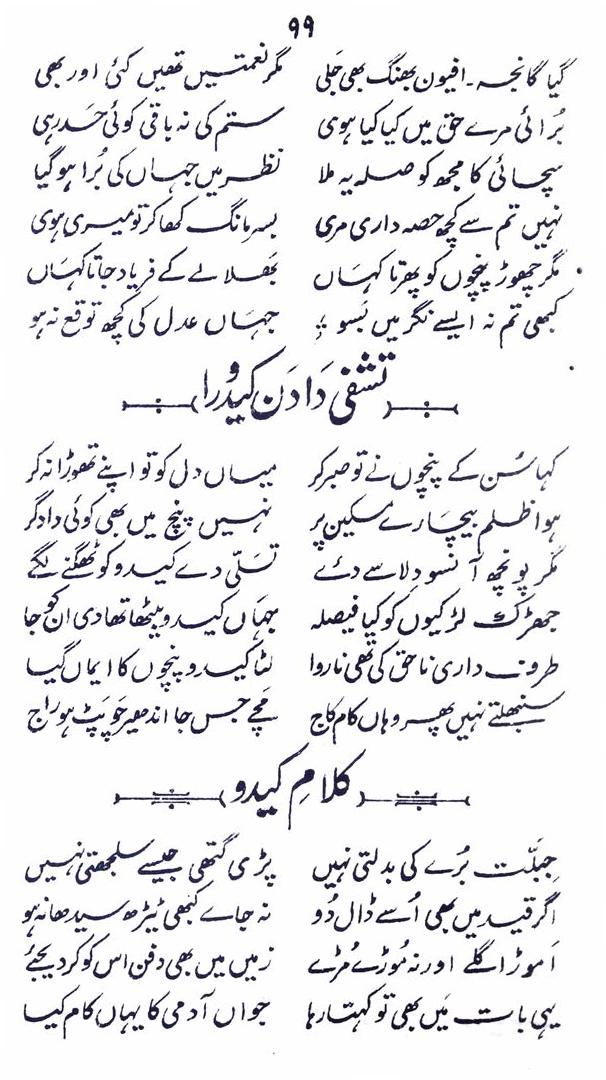 ۹۹
گیا گانجہ۔ افیون بھنگ بھی جلی مگر نعمتیں تھیں کئی اور بھی
بُرائی مرے حق میں کیا کیا ہوی ستم کی نہ باقی کوئی حد رہی
سچائی کا مجھ کو صلہ یہ ملا نظر میں جہاں کی بُرا ہوگیا
نہیں تم سے کچھ حصہ داری مری بسر مانگ کھا کر تو میری ہوی
مگر چھوڑ پنچوں کو پھرتا کہاں بغلا لے کے فریاد جاتا کہاں
کبھی تم نہ ایسے نگر میں بسو جہاں عدل کی کچھ توقع نہ ہو
تشفی دَادَن کیدُو را
کہا سُن کے پنچوں نے تو صبر کر میاں دل کو تو اپنے تھوڑا نہ کر
ہوا ظلم بیچارے مسکین پر نہیں پنچ میں بھی کوئی دادگر
مگر پونچھ آنسو دِلاسے دئے تسلّی دے کیدو کو ٹھگنے لگے
جھڑک لڑکیوں کو کیا فیصلہ جہاں کیدو بیٹھا تھا دی ان کو جا
طرف داری ناحق کی تھی ناروا لٹا کیدو پنچوں کا ایماں گیا
سنبھلتے نہیں پھر وہاں کام کاج مَچے جس جا اندھیر چَوپَٹ ہو راج
کلامِ کیدو
جِبلّت بُرے کی بدلتی نہیں پڑی گتھی جیسے سلجھتی نہیں
اگر قید میں بھی اُسے ڈال دُو نہ جاے کبھی ٹیڑھ سیدھا نہ ہو
اَموڑا گلے اور نہ مُوڑے مُڑے زمیں میں بھی دفن اس کو کر دیجئے
یہی بات مَیں بھی تو کہتا رہا جواں آدمی کا یہاں کام کیا